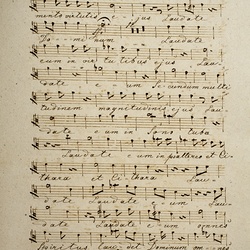 mento virtutis e - jus Laudate
Do - minum Laudate
eum in virtutibus ejus Lau
date e - um Secundum multi
tudinem magnitudinis ejus Lau
date e - um in Sono tuba
Laudate e - um in psalterio et Ci
thara et Cithara Lau -
date Laudate e - um omnes
Spiritus lau - det Dominum om - nes